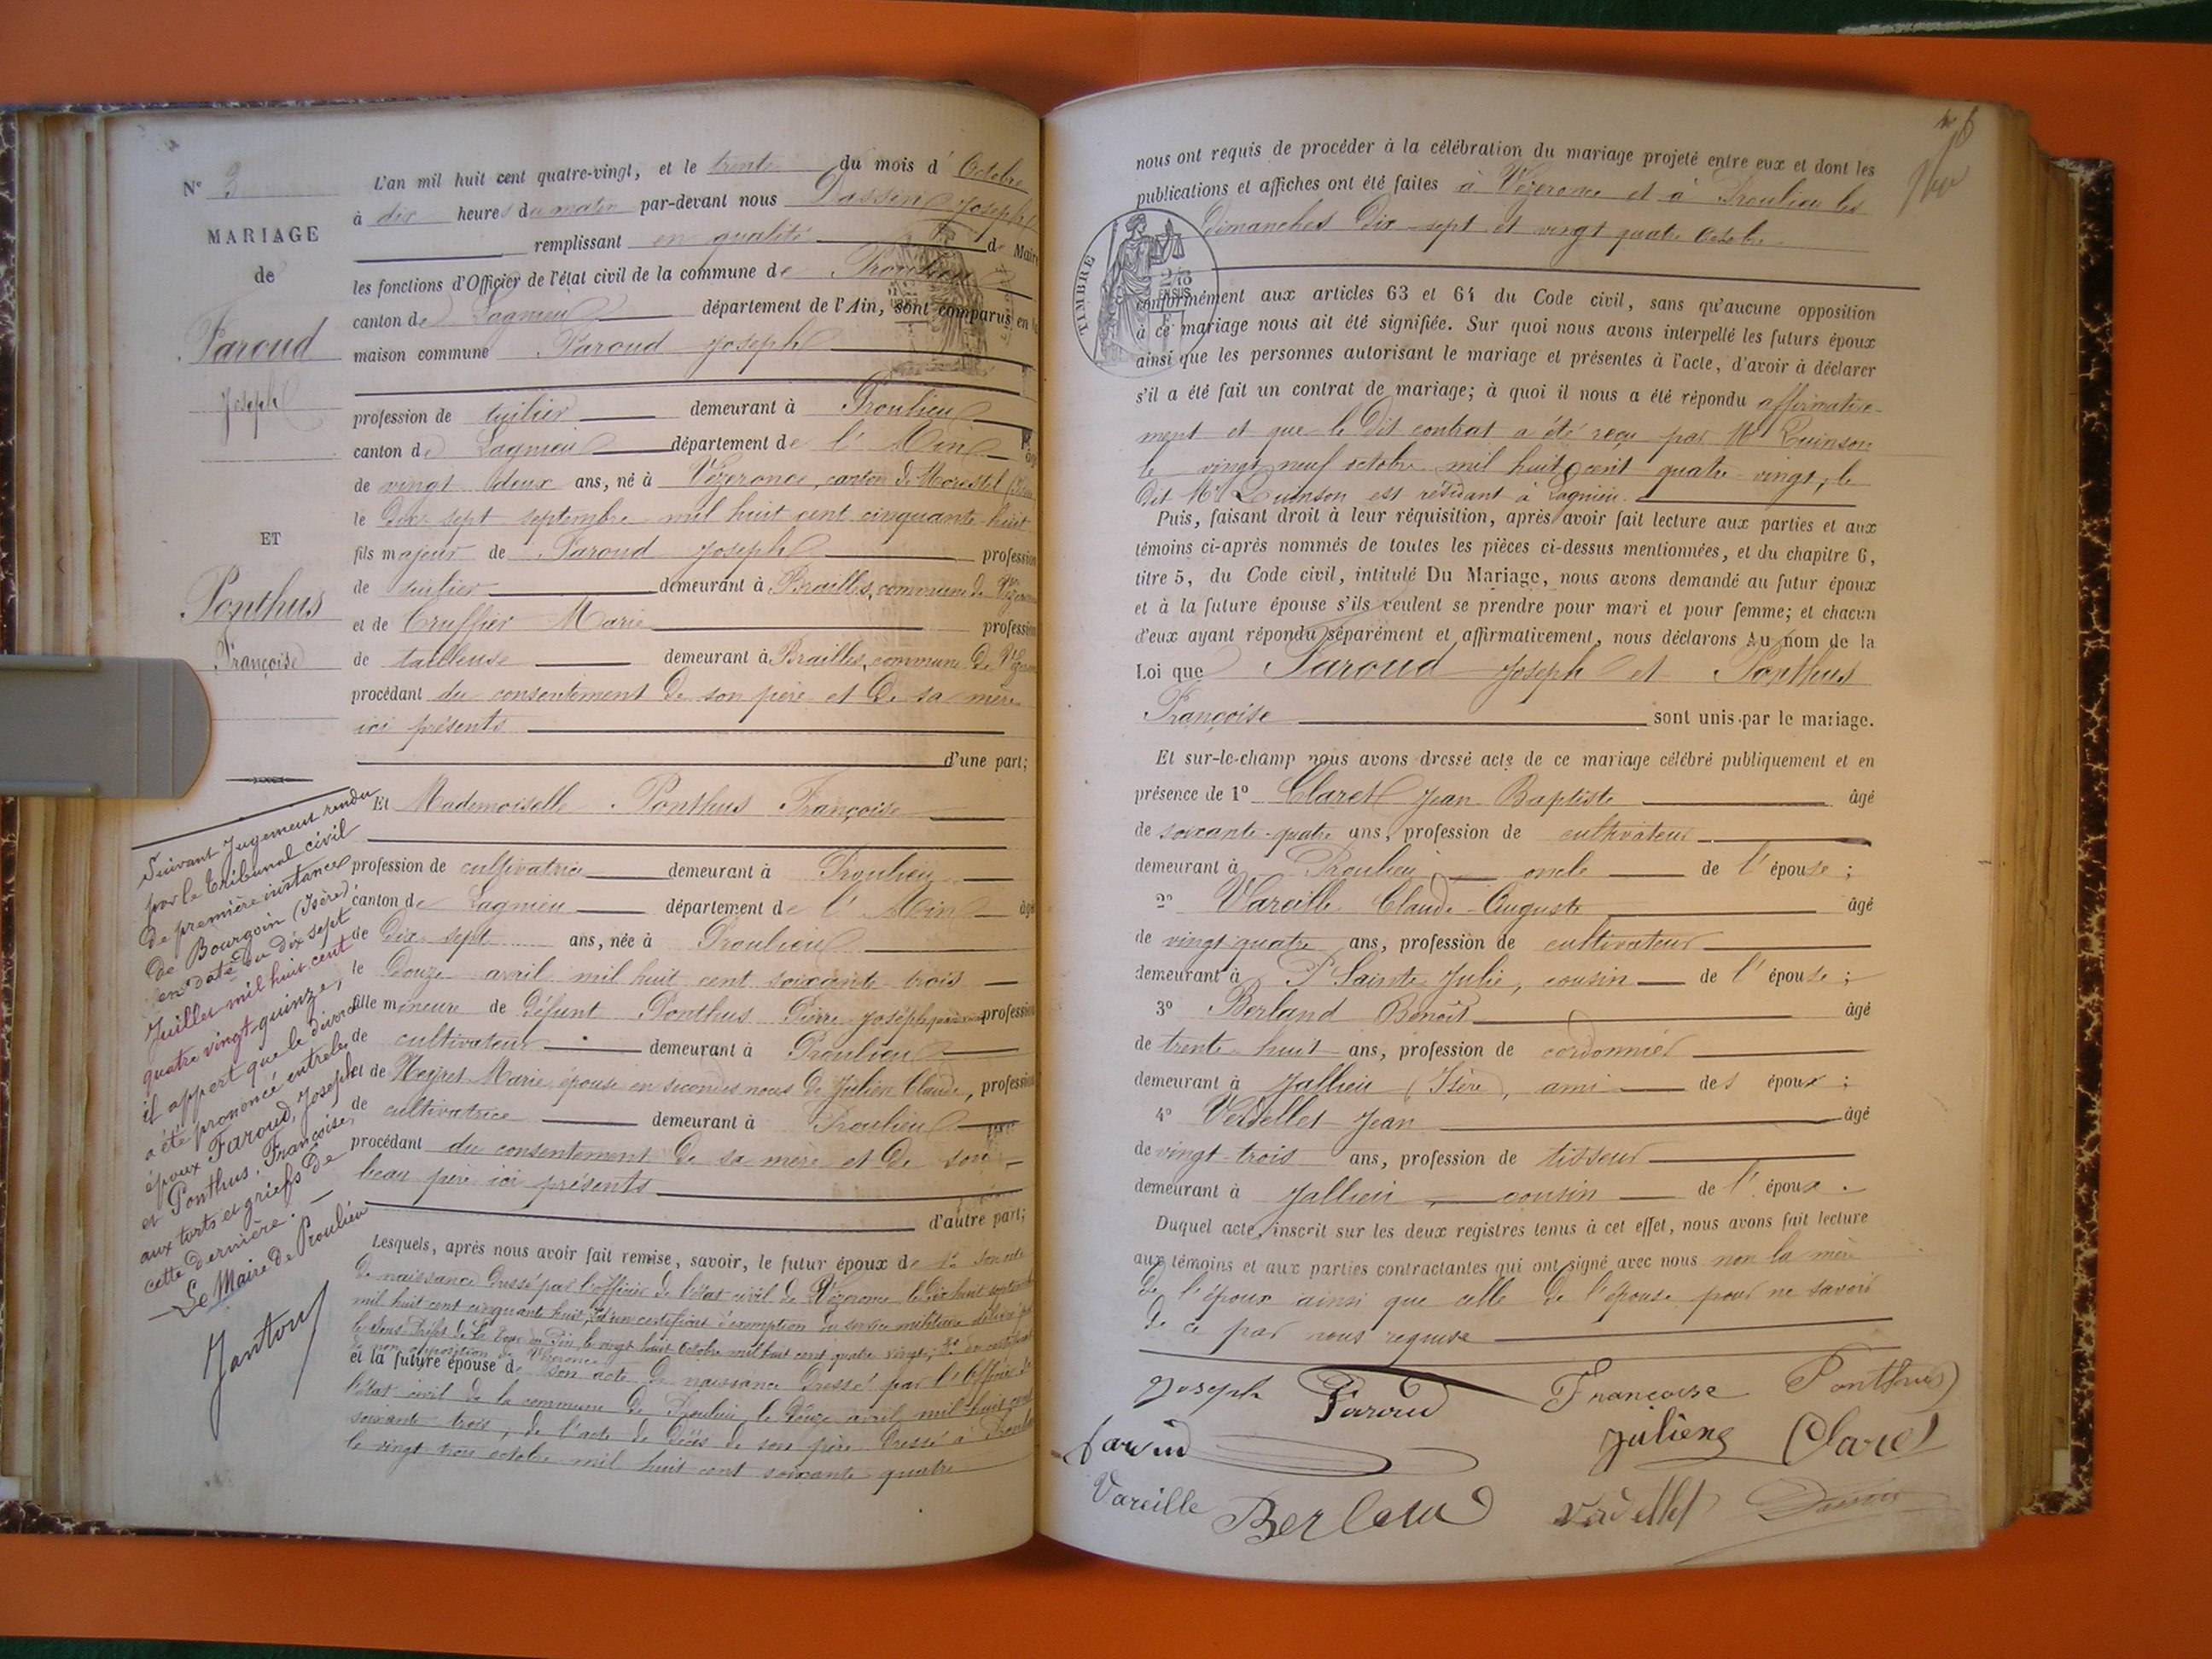 N° 3
MARIAGE
de
Faroud
Joseph
ET
Ponthus
Françoise
Suivant Jugement rendu
par le tribunal civil
de première instance
de Bourgoin (Isère)
en date du dix sept
Juillet mil huit cent
quatre vingt quinze,
il appert que le divorce
a été prononcé entre les
époux Faroud, Joseph
et Ponthus, Françoise,
aux torts et griefs de
cette dernière. —
Le Maire de Proulieu
Janton
L'an mil huit cent quatre-vingt, et le trente du mois d'Octobre
à dix heures du matin par-devant nous Dassin Joseph
remplissant en qualité de Maire
les fonctions d'Officier de l'état civil de la commune de Proulieu
canton de Lagnieu département de l'Ain, sont comparus en la
maison commune Faroud Joseph
profession de tuilier demeurant à Proulieu
canton de Lagnieu département de l'Ain âgé
de vingt deux ans, né à Vézeronce, canton de Morestel (Isère
le dix sept septembre mil huit cent cinquante huit
fils majeur de Faroud Joseph profession
de tuilier demeurant à Brailles, commune de Vézeronce
et de Truffier Marie profession
de tailleuse demeurant à Brailles, commune de Vézeronce
procédant du consentement de son père et de sa mère
ici présents
d'une part;
Et Mademoiselle Ponthus Françoise
profession de cultivatrice demeurant à Proulieu
canton de Lagnieu département de l'Ain âgé
de dix sept ans, née à Proulieu
le douze avril mil huit cent soixante trois
fille mineure de défunt Ponthus Pierre Joseph profession
de cultivateur demeurant à Proulieu
et de Neyret Marie épouse en secondes noces de Julien Claude, profession
de cultivatrice demeurant à Proulieu
procédant du consentement de sa mère et de son
beau père ici présents
d'autre part;
Lesquels, après nous avoir fait remise, savoir, le futur époux de 1° son acte
de naissance dressé par l'officier de l'état civil de Vézeronce le dix huit septembre
mil huit cent cinquante huit, d'un certificat d'exemption du service militaire délivré par
le Sous Préfet de La Tour du Pin le vingt huit Octobre mil huit cent quatre vingt; 3° du certificat
de non opposition de Vézeronce
et la future épouse de son acte de naissance dressé par l'Officier de
l'état civil de la commune de Proulieu le douze avril mil huit cent
soixante trois, de l'acte de décès de son père dressé à Proulieu
le vingt trois octobre mil huit cent soixante quatre
nous ont requis de procéder à la célébration du mariage projeté entre eux et dont les
publications et affiches ont été faites à Vézeronce et à Proulieu les
dimanches dix sept et vingt quatre Octobre
TIMBRE
2/10 EN SUS
conformément aux articles 63 et 64 du Code civil, sans qu'aucune opposition
à ce mariage nous ait été signifiée. Sur quoi nous avons interpellé les futurs époux
ainsi que les personnes autorisant le mariage et présentes à l'acte, d'avoir à déclarer
s'il a été fait un contrat de mariage; à quoi il nous a été répondu affirmative-
ment et que le dit contrat a été reçu par Me Quinson
le vingt neuf octobre mil huit cent quatre vingt, le
dit Me Quinson est résidant à Lagnieu.
Puis, faisant droit à leur réquisition, après avoir fait lecture aux parties et aux
témoins ci-après nommés de toutes les pièces ci-dessus mentionnées, et du chapitre 6,
titre 5, du Code civil, intitulé Du Mariage, nous avons demandé au futur époux
et à la future épouse s'ils veulent se prendre pour mari et pour femme; et chacun
d'eux ayant répondu séparément et affirmativement, nous déclarons Au nom de la
Loi que Faroud Joseph et Ponthus
Françoise sont unis par le mariage.
Et sur-le-champ nous avons dressé acte de ce mariage célébré publiquement et en
présence de 1° Claret Jean Baptiste âgé
de soixante-quatre ans, profession de cultivateur
demeurant à Proulieu oncle de l'épouse;
2° Vareille Claude Auguste âgé
de vingt quatre ans, profession de cultivateur
demeurant à Ste Julie, cousin de l'épouse;
3° Berland Benoît âgé
de trente huit ans, profession de cordonnier
demeurant à Jallieu (Isère), ami des époux;
4° Verdellet Jean âgé
de vingt trois ans, profession de tisseur
demeurant à Jallieu, cousin de l'époux.
Duquel acte, inscrit sur les deux registres tenus à cet effet, nous avons fait lecture
aux témoins et aux parties contractantes qui ont signé avec nous non la mère
de l'époux ainsi que celle de l'épouse pour ne savoir
de ce par nous requise
Joseph Faroud Françoise Ponthus
farud Julieng Claret
Vareille Berland Verdellet Dassin